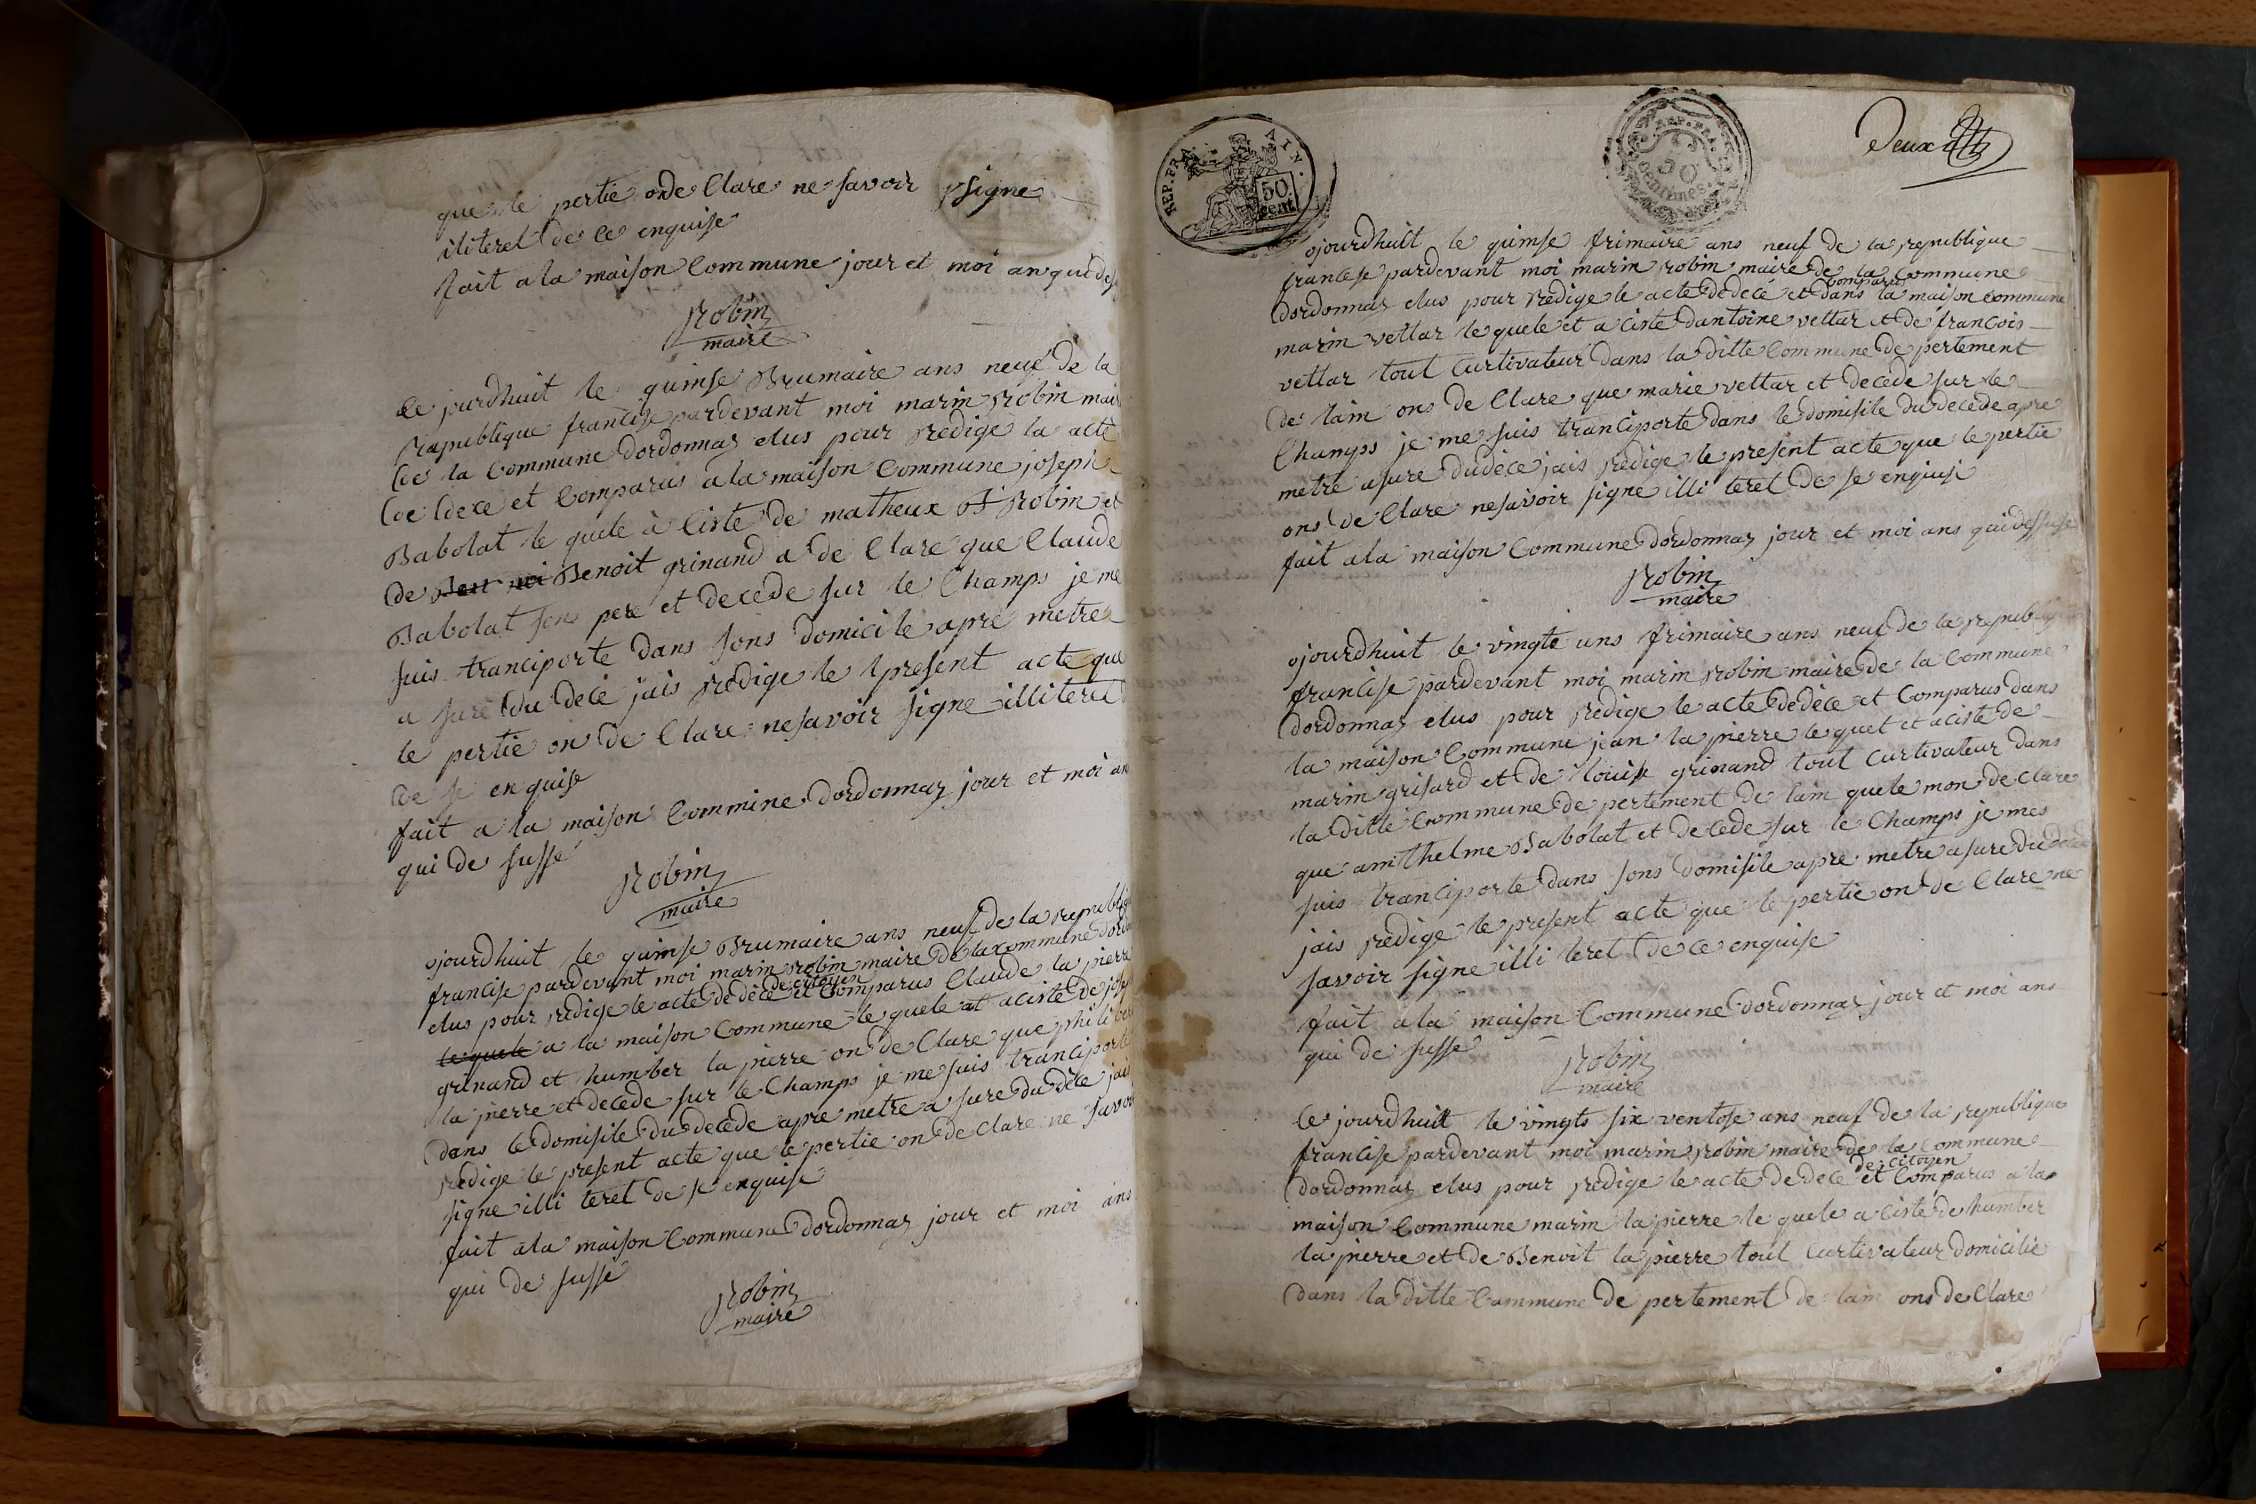 que le pertie onde Clare ne savoir signe
iliteret de ce enquise
fait a la maison Commune jour et moi an qui
Robin
maire
Ce jourdhuit le quinse Brumaire ans neuf de la
Republique francise pardevant moi marin Robin
de la Commune dordonnaz elus pour redige la acte
de dece et Comparus a la maison Commune joseph
Babolat le quele à Ciste de matheux Robin et
de Benoit grinand a de Clare que Claude
Babolat sons pere et decede sur le Champs je me
suis tranciporte dans sons domicile apre metre
a sure du dece jais redige le present acte que
le pertie on de Clare ne savoir signe illiteret
de se enquise
fait a la maison Commine dordonnaz jour et moi an
qui de susse
Robin
maire
ojourdhuit le quinse Brumaire ans neuf de la
francise pardevant moi marin Robin maire de la Commune
de citoyen
elus pour redige le acte de dece et Comparus Claude la pierre
le quele a la maison Commune le quele at aciste de
grinand et humber la pierre on de Clare que
la pierre et decede sur le Champs je me suis tranciporte
dans le domisile du decede apre metre a sure du dece jais
redige le present acte que le pertie on de clare ne savoir
signe illi teret de se enquise
fait a la maison Commune dordonnaz jour et moi ans
qui de susse
Robin
maire
REP. FRA. AIN.
50 cent
REP. FRA.
50 centimes
Deux
ojourdhuit le quinse frimaire ans neuf de la republique
francise pardevant moi marin robin maire de la Commune
comparus
dordonnaz elus pour redige le acte de dece et dans la maison commune
marin vettar le quele et a ciste dantoine vettar et de francois
vettar tout Curtivateur dans la ditte Commune de pertement
de lain ons de Clare que marie vettar et decede sur le
Champs je me suis tranciporte dans le domisile du decede apre
metre asure du dece jais redige le present acte que le pertie
ons de Clare ne savoir signe illi teret de se enquise
fait a la maison Commune dordonnaz jour et moi ans qui dessusse
Robin
maire
ojourdhuit le vingte uns frimaire ans neuf de la
francise pardevant moi marin robin maire de la Commune
dordonnaz elus pour redige le acte de dece et Comparus dans
la maison Commune jean la pierre le quel et aciste de
marin grisard et de louise grinand tout Curtivateur dans
la ditte Commune de pertement de lain quele mon de Clare
que amthelme Babolat et decede sur le Champs je mes
suis tranciporte dans sons domisile apre metre asure du
jais redige le present acte que le pertie on de Clare ne
savoir signe illi teret de ce enquise
fait a la maison Commune dordonnaz jour et moi ans
qui de susse
Robin
maire
Ce jourdhuit le vingts six ventose ans neuf de la republique
francise pardevant moi marin robin maire de la Commune
de citoyen
dordonnaz elus pour redige le acte de dece et Comparus a la
maison Commune marin la pierre le quele a Ciste de humber
la pierre et de Benoit la pierre tout Curtivateur domicilie
dans la ditte Commune de pertement de lain ons de Clare